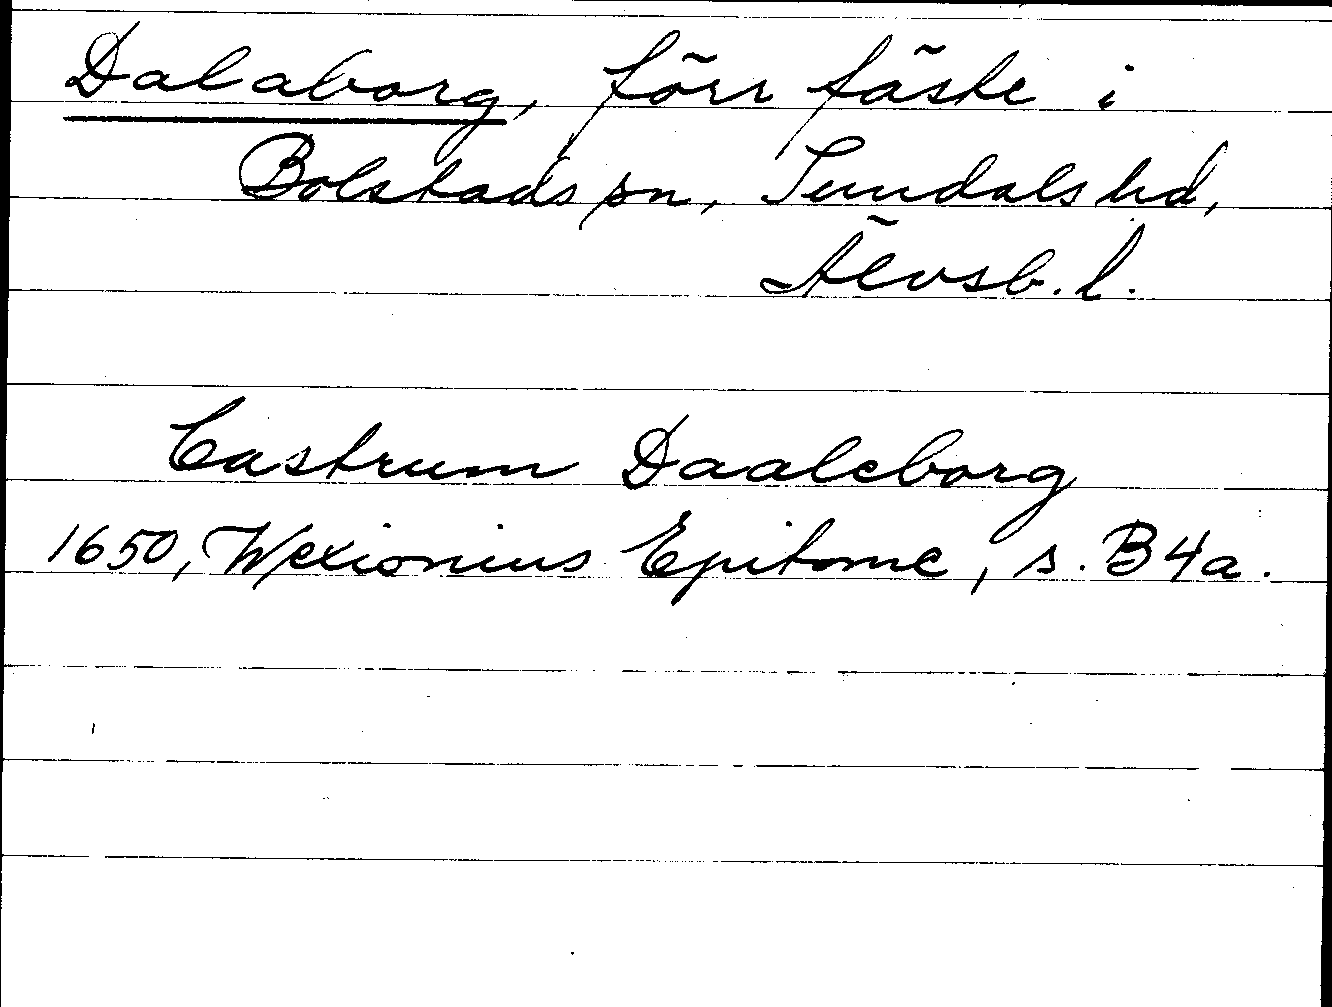 Dalaborg, förr fäste i
Bolstads sn, Sundals hd,
Älvsb. l.
Castrum Daaleborg
1650, Wexionius Epitome, s. B4a.